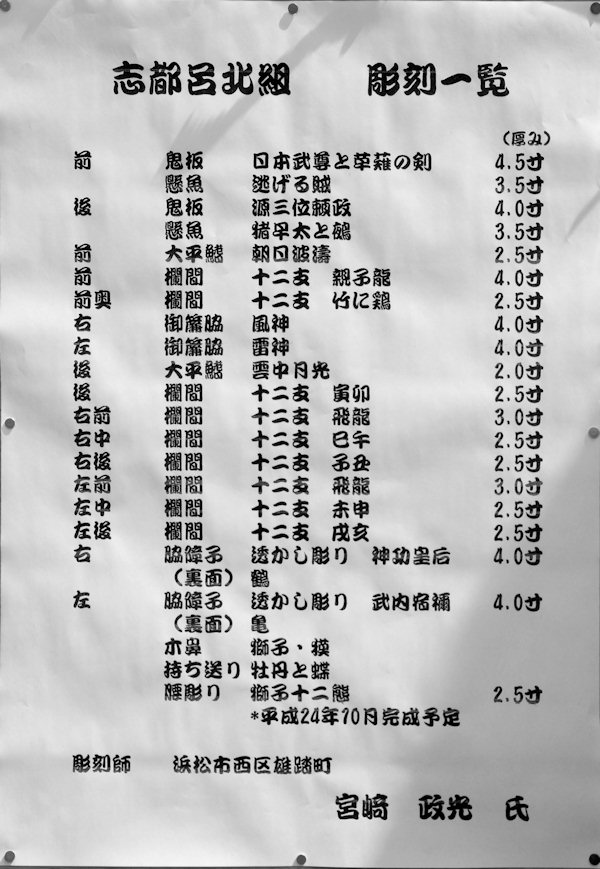 志都呂北組　彫刻一覧
（厚み）
前　鬼板　日本武尊と草薙の剣　4.5寸
懸魚　逃げる賊　3.5寸
後　鬼板　源三位頼政　4.0寸
懸魚　猪早太と鵺　3.5寸
前　大平鰭　朝日波濤　2.5寸
前　欄間　十二支　親子龍　4.0寸
前奥　欄間　十二支　竹に鶏　2.5寸
右　御簾脇　風神　4.0寸
左　御簾脇　雷神　4.0寸
後　大平鰭　雲中月光　2.0寸
後　欄間　十二支　寅卯　2.5寸
右前　欄間　十二支　飛龍　3.0寸
右中　欄間　十二支　巳午　2.5寸
右後　欄間　十二支　子丑　2.5寸
左前　欄間　十二支　飛龍　3.0寸
左中　欄間　十二支　未申　2.5寸
左後　欄間　十二支　戌亥　2.5寸
右　脇障子　透かし彫り　神功皇后　4.0寸
（裏面）鶴
左　脇障子　透かし彫り　武内宿禰　4.0寸
（裏面）亀
木鼻　獅子・獏
持ち送り　牡丹と蝶
腰彫り　獅子十二態　2.5寸
*平成24年10月完成予定
彫刻師　浜松市西区雄踏町
宮﨑　政光　氏